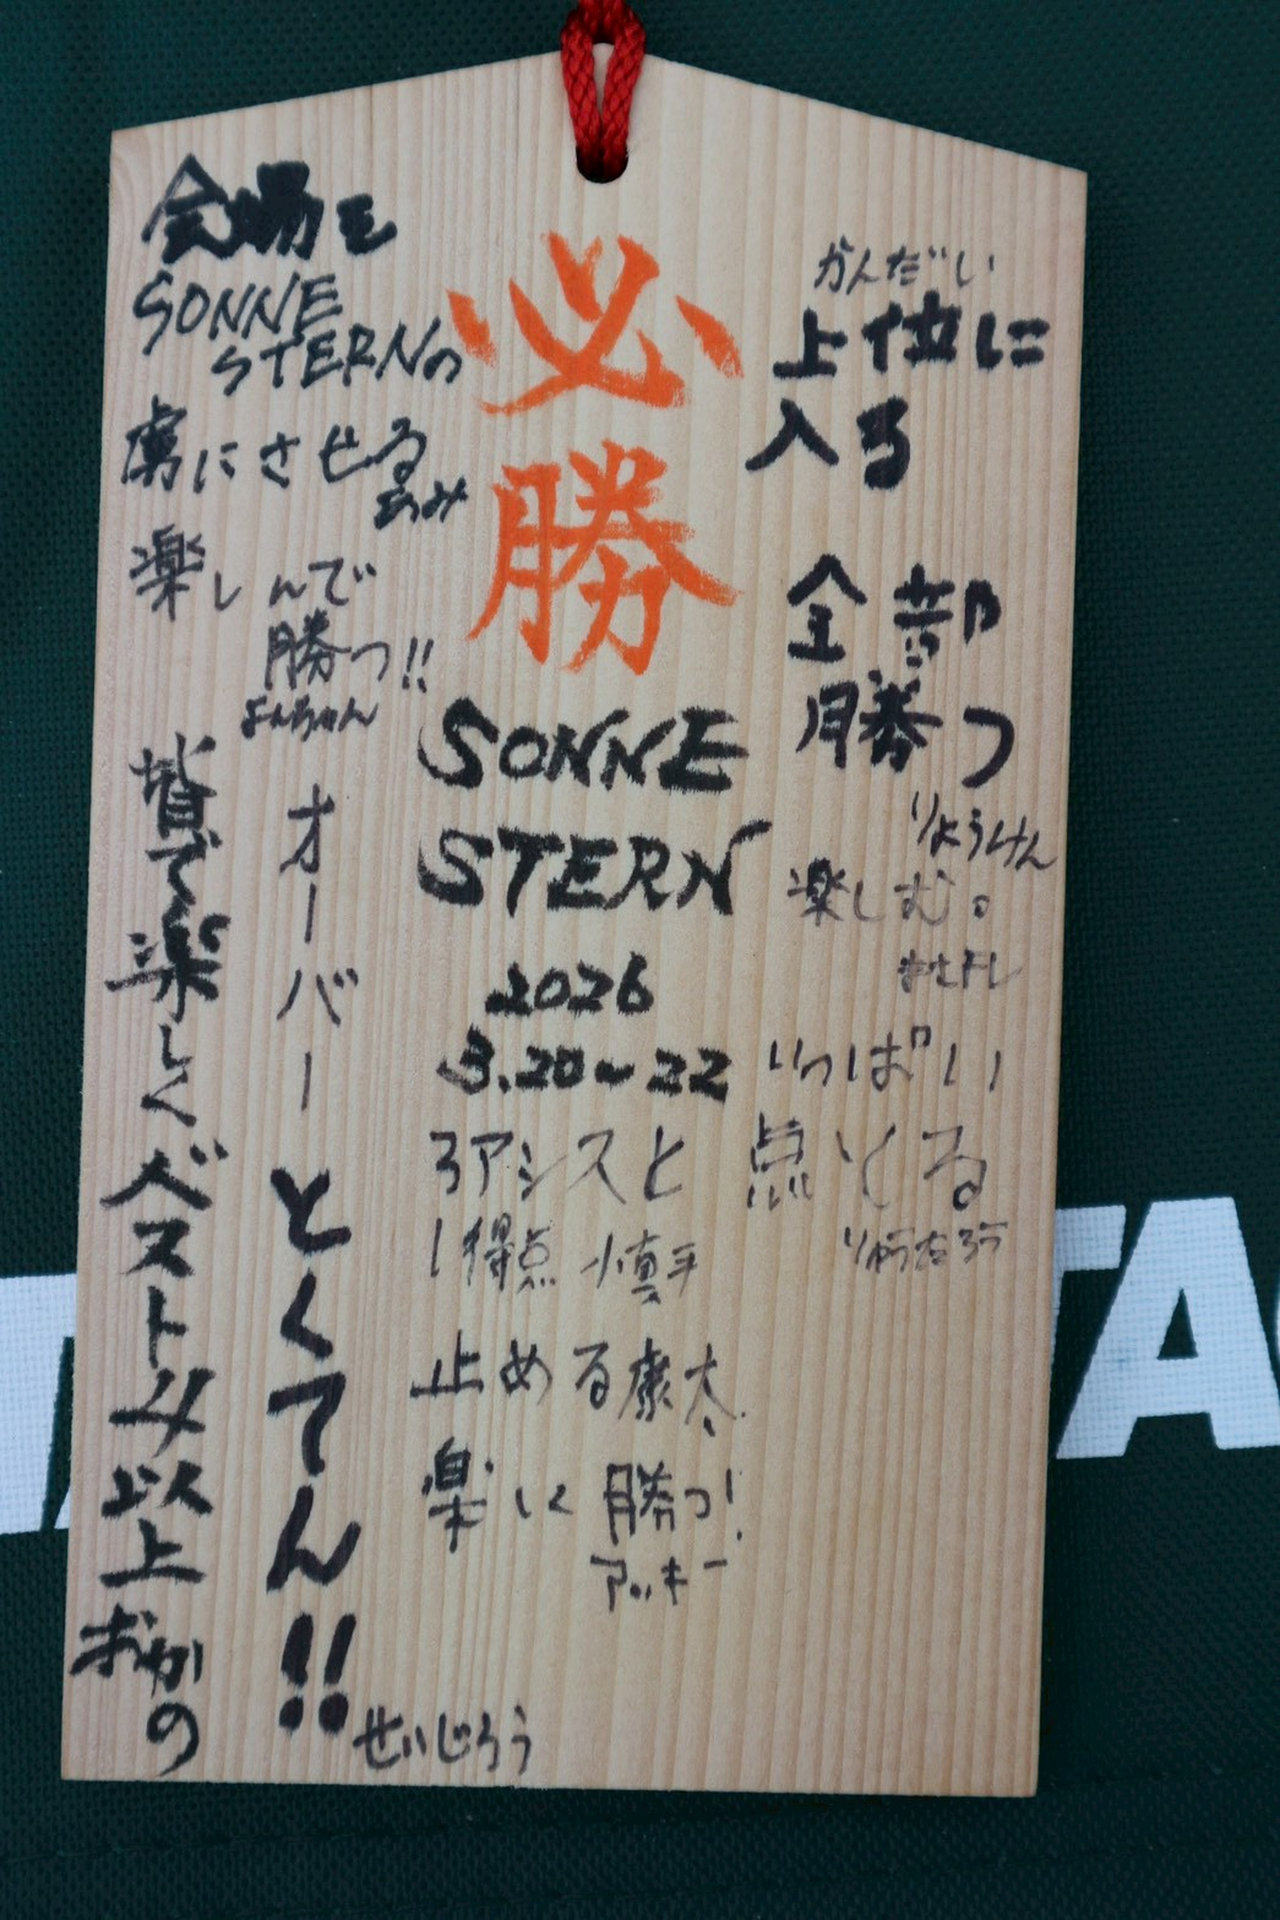 必勝
SONNE
STERN
2026
3.20~22
会場を
SONNE
STERNの
虜にさせる
楽しんで
勝つ!!
よんちゃん
皆で楽しくベスト4以上
おかの
オーバー
とくてん!!
せいじろう
かんだい
上位に
入る
全部
勝つ
りょうけん
楽しむ。
いっぱい
点とる
りゅうたろう
3アシスと
1得点 慎平
止める康太
楽に勝つ!
アッキー
TA